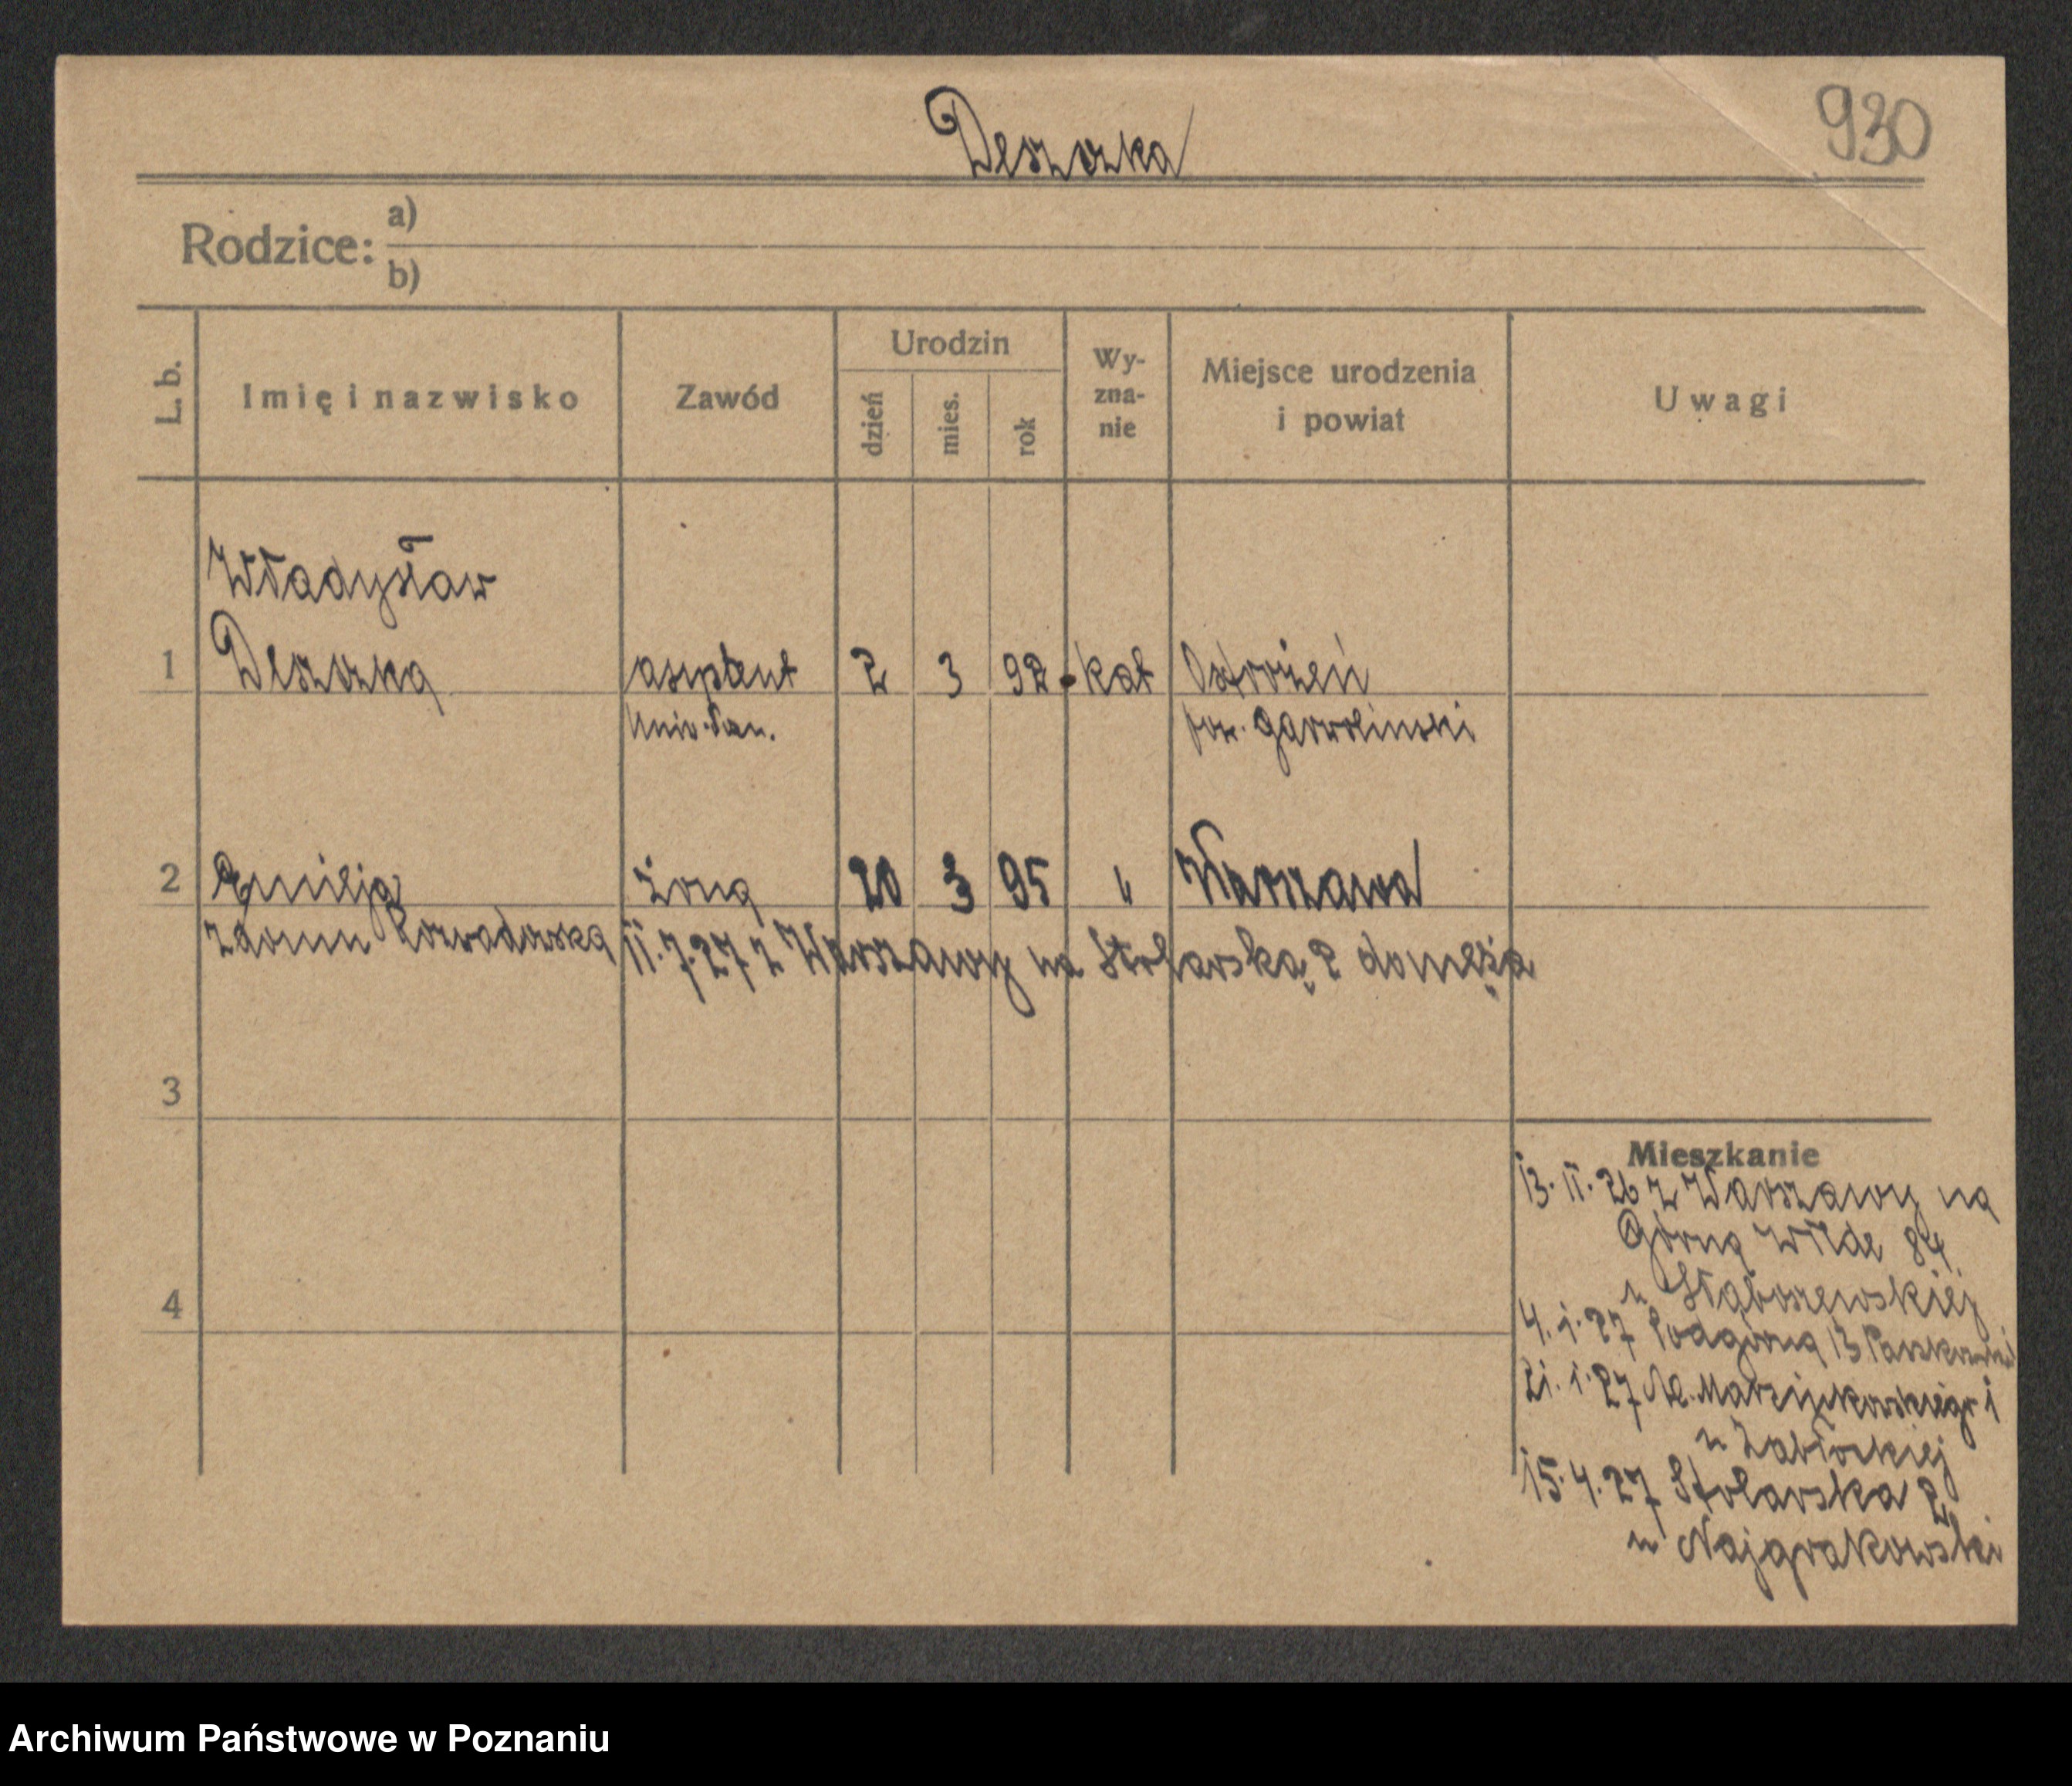 Deszczka
930
Rodzice: a)
b)
L. b.
Imię i nazwisko
Zawód
Urodzin
dzień
mies.
rok
Wy-
zna-
nie
Miejsce urodzenia
i powiat
Uwagi
Władysław
1 Deszczka asystent 2 3 92 kat Ostrożeń
Univ. Pozn. pow. Garwoliński
2 Emilja żona 20 3 95 " Warszawa
z domu Rozwadowska 11.7.27 z Warszawy na Stolarską 2 do męża
3
4
Mieszkanie
13.11.26 z Warszawy na
Górną Wildę 84
u
4.1.27 Podgórna 13
21.1.27 Al. Marcinkowskiego 1
u Zabłockiej
15.4.27 Stolarska 2
u Najgrakowski
Archiwum Państwowe w Poznaniu